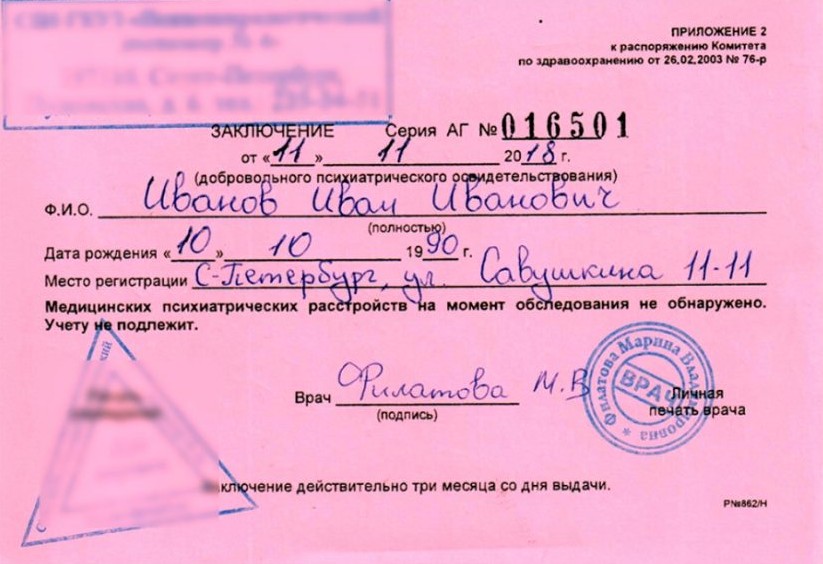 ПРИЛОЖЕНИЕ 2
к распоряжению Комитета
по здравоохранению от 26.02.2003 № 76-р
ЗАКЛЮЧЕНИЕ Серия АГ № 016501
от «11» 11 2018 г.
(добровольного психиатрического освидетельствования)
Ф.И.О. Иванов Иван Иванович
(полностью)
Дата рождения «10» 10 1990 г.
Место регистрации С-Петербург, ул. Савушкина 11-11
Медицинских психиатрических расстройств на момент обследования не обнаружено.
Учету не подлежит.
Врач Филатова М.В
(подпись)
Филатова Марина Владимировна
ВРАЧ
Личная
печать врача
заключение действительно три месяца со дня выдачи.
Р№862/Н